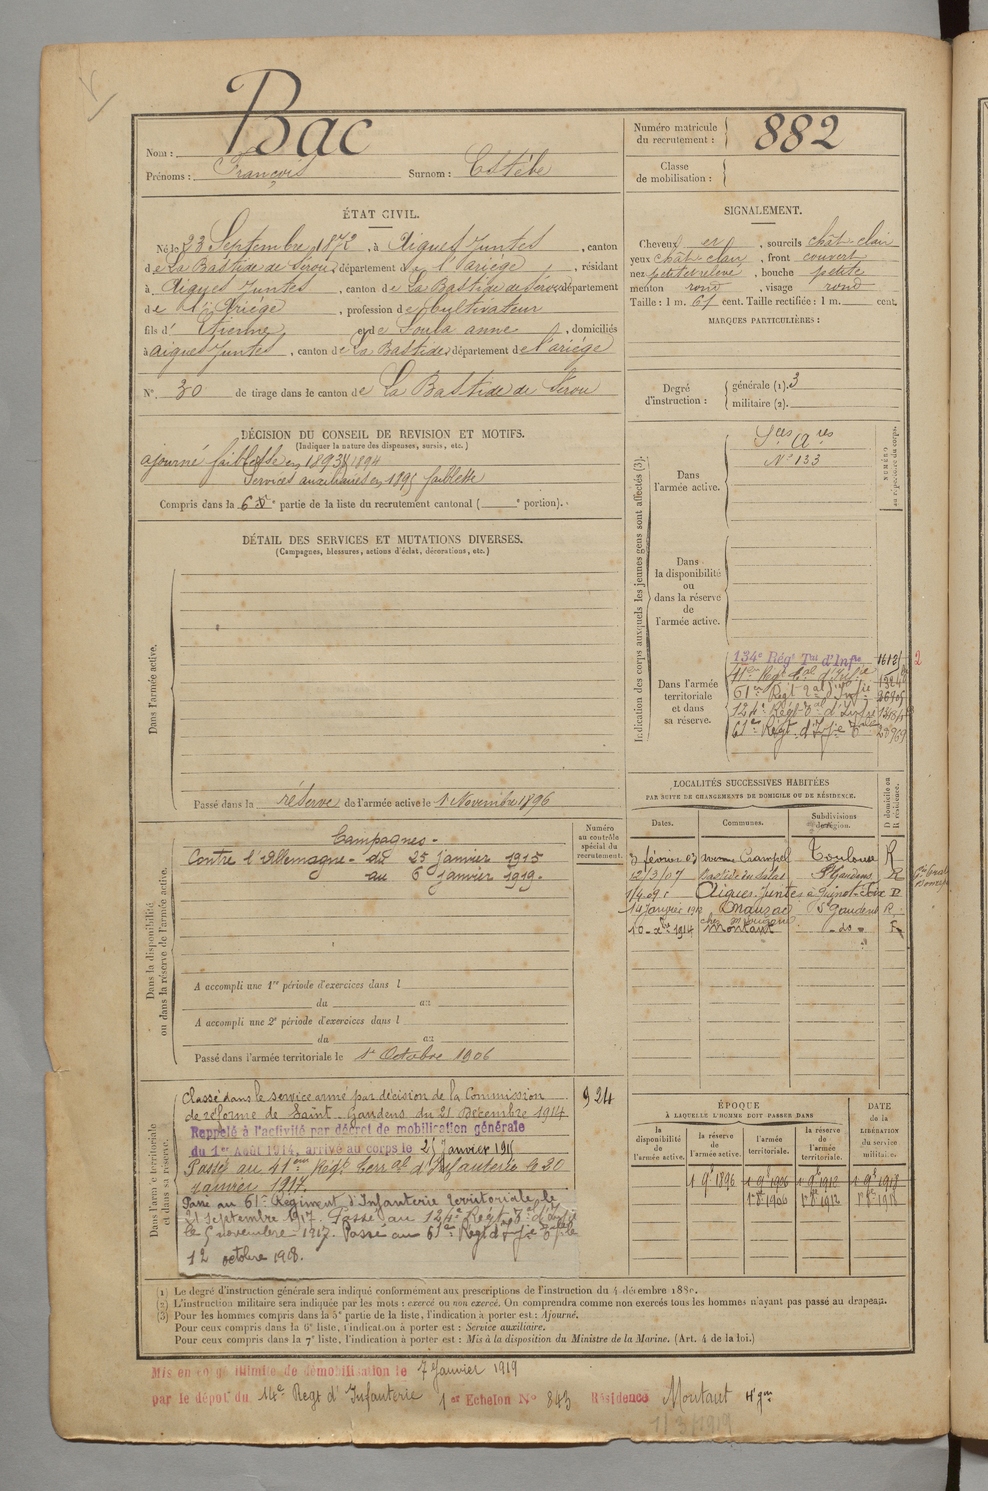 Nom : Bac
Prénoms : François Surnom : Estèbe
Numéro matricule
du recrutement : 882
Classe
de mobilisation :
ÉTAT CIVIL.
Né le 23 Septembre 1872, à Aigues Juntes, canton
de La Bastide de Sérou, département de l'Ariège, résidant
à Aigues Juntes, canton de La Bastide de Sérou, département
de l'Ariège, profession de Cultivateur
fils d' Etienne et de Soula anne, domiciliés
à Aigues Juntes, canton de La Bastide, département de l'ariège
N° 30 de tirage dans le canton de La Bastide de Sérou
SIGNALEMENT.
Cheveux et, sourcils chât-clair
yeux chât clair, front couvert
nez petit et relevé, bouche petite
menton rond, visage rond
Taille : 1 m. 61 cent. Taille rectifiée : 1 m. cent.
MARQUES PARTICULIÈRES :
Degré
d'instruction :
générale (1). 3
militaire (2).
DÉCISION DU CONSEIL DE REVISION ET MOTIFS.
(Indiquer la nature des dispenses, sursis, etc.)
ajourné faiblesse en 1893 1894
Services auxiliaires en 1895 faiblesse
Compris dans la 6e partie de la liste du recrutement cantonal ( e portion).
DÉTAIL DES SERVICES ET MUTATIONS DIVERSES.
(Campagnes, blessures, actions d'éclat, décorations, etc.)
Dans l'armée active.
Passé dans la réserve de l'armée active le 1 Novembre 1896
Indication des corps auxquels les jeunes gens sont affectés (3).
NUMÉRO
au répertoire du corps.
Dans
l'armée active.
Sces Ares
N° 133
Dans
la disponibilité
ou
dans la réserve
de
l'armée active.
Dans l'armée
territoriale
et dans
sa réserve.
134e Régt Tal d'Infie
41e Régt tal d'Infie
61e Regt Tal d'Infie
124e Régt Tal d'Infie
61e Régt d'Ifie Tale
2
Dans la disponibilité
ou dans la réserve de l'armée active.
Campagnes -
Contre l'Allemagne - du 25 Janvier 1915
au 6 Janvier 1919.
Numéro
au contrôle
spécial du
recrutement.
A accompli une 1re période d'exercices dans l
du au
A accompli une 2e période d'exercices dans l
du au
Passé dans l'armée territoriale le 1er Octobre 1906
LOCALITÉS SUCCESSIVES HABITÉES
PAR SUITE DE CHANGEMENTS DE DOMICILE OU DE RÉSIDENCE.
Dates. Communes. Subdivisions de région. D domicile ou R résidence.
3 février 03 avenue Crampel Toulouse R
12/3/07 Bastide du Salat St Gaudens R
1/4 09 Aigues Juntes Foix D
14 Janvier 1912 Mauzac St Gaudens R
10 - Xbre 1914 Montaut - do - R
Dans l'armée territoriale
et dans sa réserve.
Classé dans le service armé par décision de la Commission
de réforme de Saint-Gaudens du 21 Décembre 1914
924
Rappelé à l'activité par décret de mobilisation générale
du 1er Août 1914, arrivé au corps le 25 Janvier 1915
Passé au 41eme Régt Terral d'Infanterie le 30
janvier 1917.
Passé au 61e Régiment d'Infanterie territoriale le
21 septembre 1917. Passé au 124e Régt Tal d'Infie
le 5 novembre 1917. Passé au 61e Régt d'Ifie Tale le
12 octobre 1918.
ÉPOQUE
À LAQUELLE L'HOMME DOIT PASSER DANS
la disponibilité de l'armée active. la réserve de l'armée active. l'armée territoriale. la réserve de l'armée territoriale.
DATE
de la
LIBÉRATION
du service
militaire.
1 9b 1896 1 9b 1906 1 9b 1912 1 9b 1918
1er 8b 1906 1er 8b 1912 1er 8b 1918
(1) Le degré d'instruction générale sera indiqué conformément aux prescriptions de l'instruction du 4 décembre 1889.
(2) L'instruction militaire sera indiquée par les mots : exercé ou non exercé. On comprendra comme non exercés tous les hommes n'ayant pas passé au drapeau.
(3) Pour les hommes compris dans la 5e partie de la liste, l'indication à porter est : Ajourné.
Pour ceux compris dans la 6e liste, l'indication à porter est : Service auxiliaire.
Pour ceux compris dans la 7e liste, l'indication à porter est : Mis à la disposition du Ministre de la Marine. (Art. 4 de la loi.)
Mis en congé illimité de démobilisation le 7 Janvier 1919
par le dépôt du 14e Regt d'Infanterie 1er Echelon N° 843 Résidence Montaut Hte Gne
1/3/1919